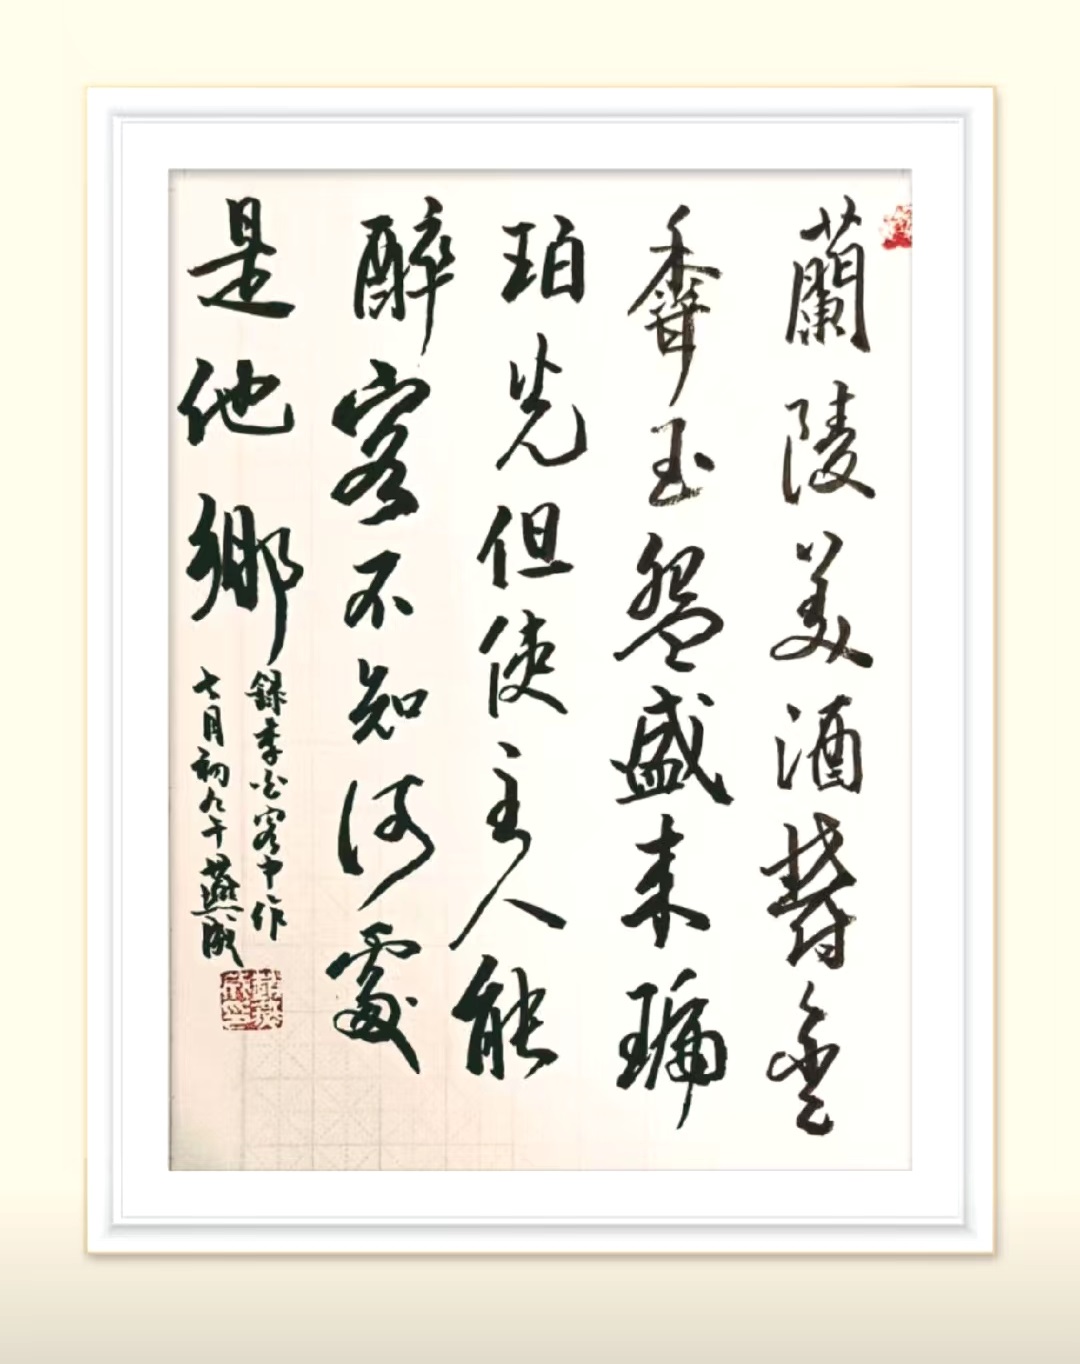 蘭陵美酒欝金
香玉盌盛来琥
珀光但使主人能
醉客不知何處
是他鄉
録李白客中作
七月初九于燕